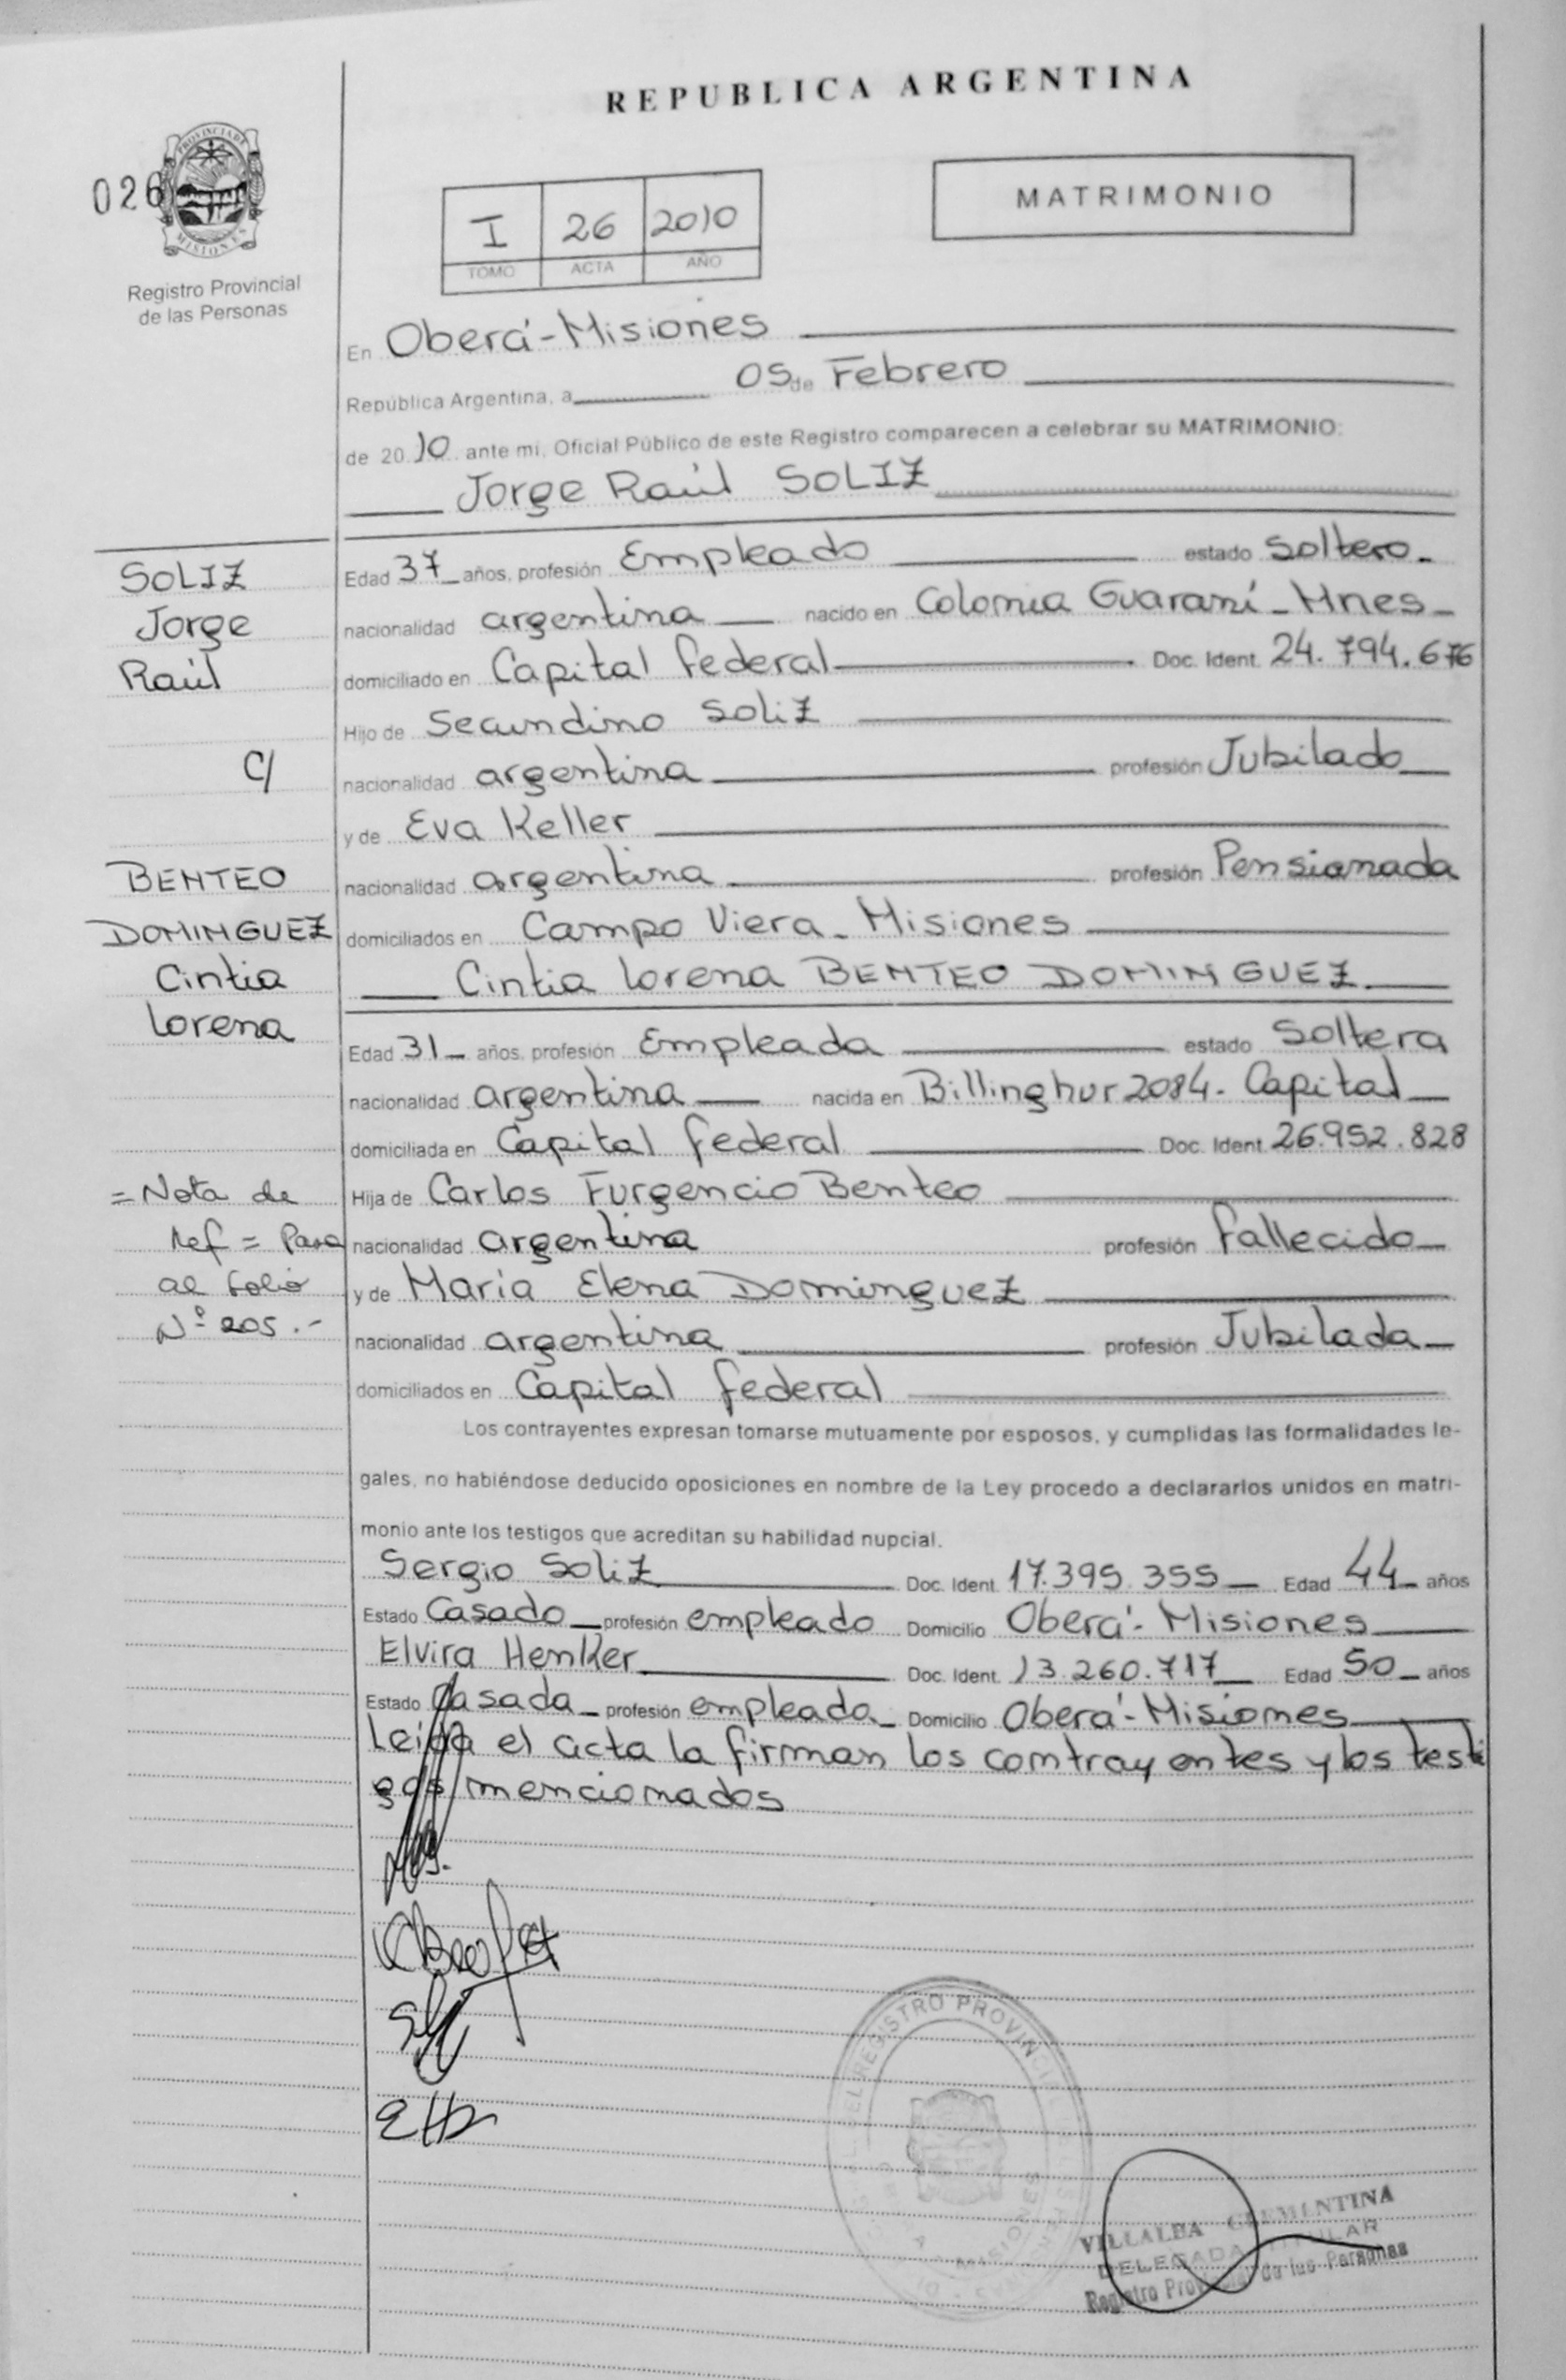 REPUBLICA ARGENTINA
026
PROVINCIA DE
MISIONES
Registro Provincial
de las Personas
I 26 2010
TOMO ACTA AÑO
MATRIMONIO
En Oberá-Misiones
República Argentina, a 05 de Febrero
de 2010 ante mí, Oficial Público de este Registro comparecen a celebrar su MATRIMONIO:
Jorge Raúl SOLIZ
SOLIZ
Jorge
Raúl
C/
BENTEO
DOMINGUEZ
Cintia
Lorena
= Nota de
Ref = Pasa
al folio
Nº 205.-
Edad 37 años, profesión Empleado estado Soltero.
nacionalidad argentina nacido en Colonia Guaraní - Mnes
domiciliado en Capital Federal Doc. Ident. 24.794.676
Hijo de Secundino Soliz
nacionalidad argentina profesión Jubilado
y de Eva Keller
nacionalidad argentina profesión Pensionada
domiciliados en Campo Viera - Misiones
Cintia Lorena BENTEO DOMINGUEZ
Edad 31 años, profesión Empleada estado Soltera
nacionalidad argentina nacida en Billinghur 2084. Capital
domiciliada en Capital Federal Doc. Ident. 26.952.828
Hija de Carlos Furgencio Benteo
nacionalidad argentina profesión Fallecido
y de María Elena Dominguez
nacionalidad argentina profesión Jubilada
domiciliados en Capital Federal
Los contrayentes expresan tomarse mutuamente por esposos, y cumplidas las formalidades le-
gales, no habiéndose deducido oposiciones en nombre de la Ley procedo a declararlos unidos en matri-
monio ante los testigos que acreditan su habilidad nupcial.
Sergio Soliz Doc. Ident. 17.395.355 Edad 44 años
Estado Casado profesión empleado Domicilio Oberá - Misiones
Elvira Henker Doc. Ident. 13.260.717 Edad 50 años
Estado Casada profesión empleada Domicilio Oberá - Misiones
Leida el acta la firman los contrayentes y los testi
gos mencionados
REGISTRO PROVINCIAL
MISIONES
VILLALBA CLEMENTINA
DELEGADA TITULAR
Registro Provincial de las Personas